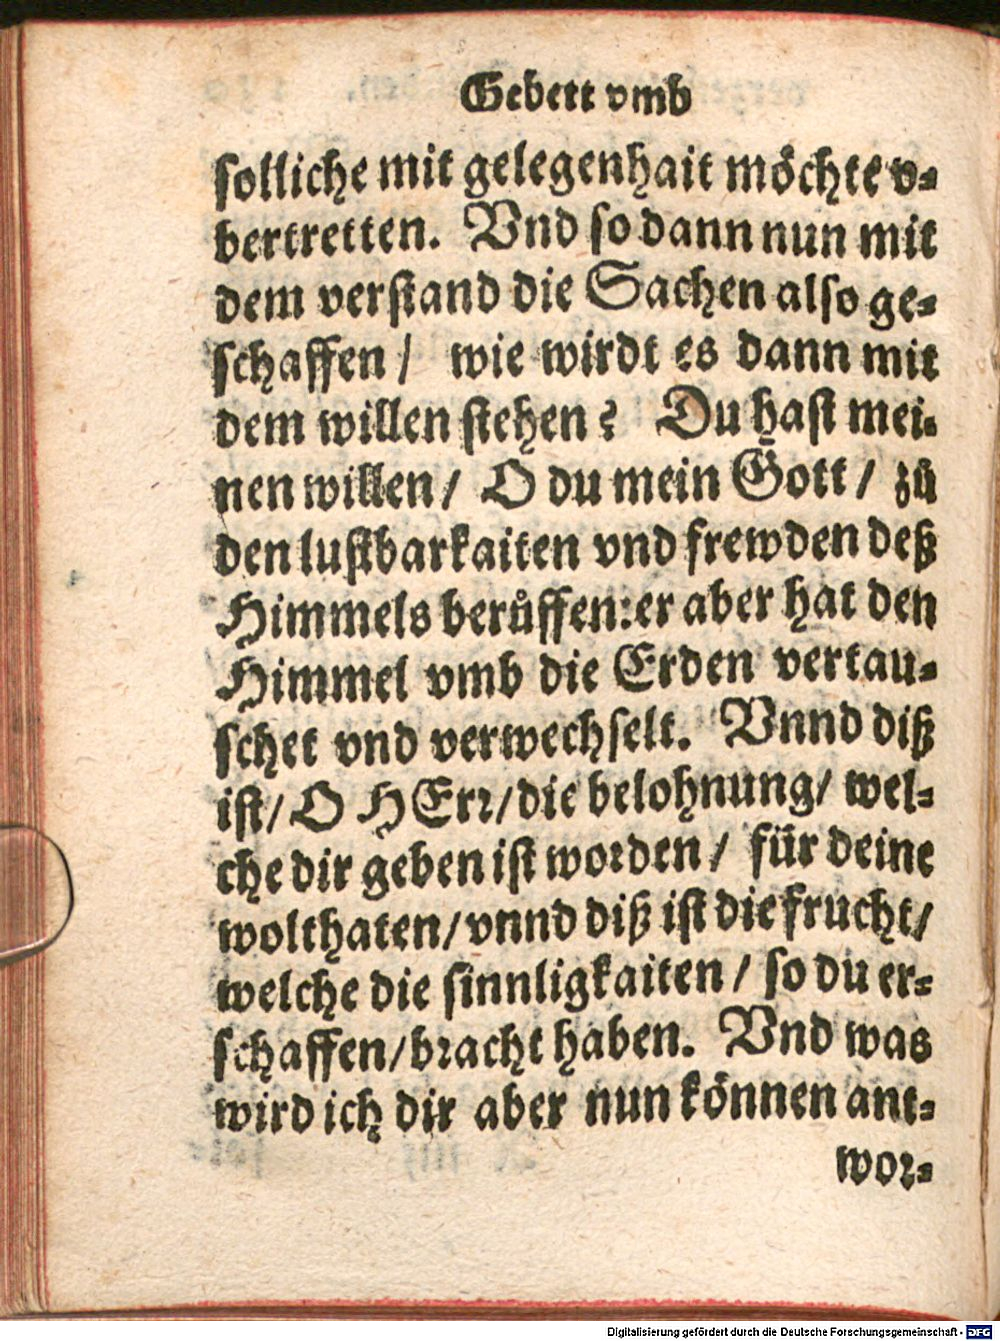 Gebett vmb
solliche mit gelegenhait möchte v-
bertretten. Vnd so dann nun mit
dem verstand die Sachen also ge-
schaffen / wie wirdt es dann mit
dem willen stehen? Du hast mei-
nen willen / O du mein Gott / zů
den lustbarkaiten vnd frewden deß
Himmels berůffen: er aber hat den
Himmel vmb die Erden vertau-
schet vnd verwechselt. Vnnd diß
ist / O HErr / die belohnung / wel-
che dir geben ist worden / für deine
wolthaten / vnnd diß ist die frucht /
welche die sinnligkaiten / so du er-
schaffen / bracht haben. Vnd was
wird ich dir aber nun können ant-
wor-
Digitalisierung gefördert durch die Deutsche Forschungsgemeinschaft - DFG